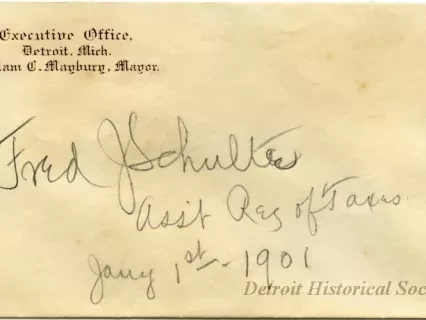 Executive Office,
Detroit, Mich.
iam C. Maybury, Mayor.
Fred J Schultes
Ass't Reg of Taxes
Jany 1st - 1901
Detroit Historical Soc